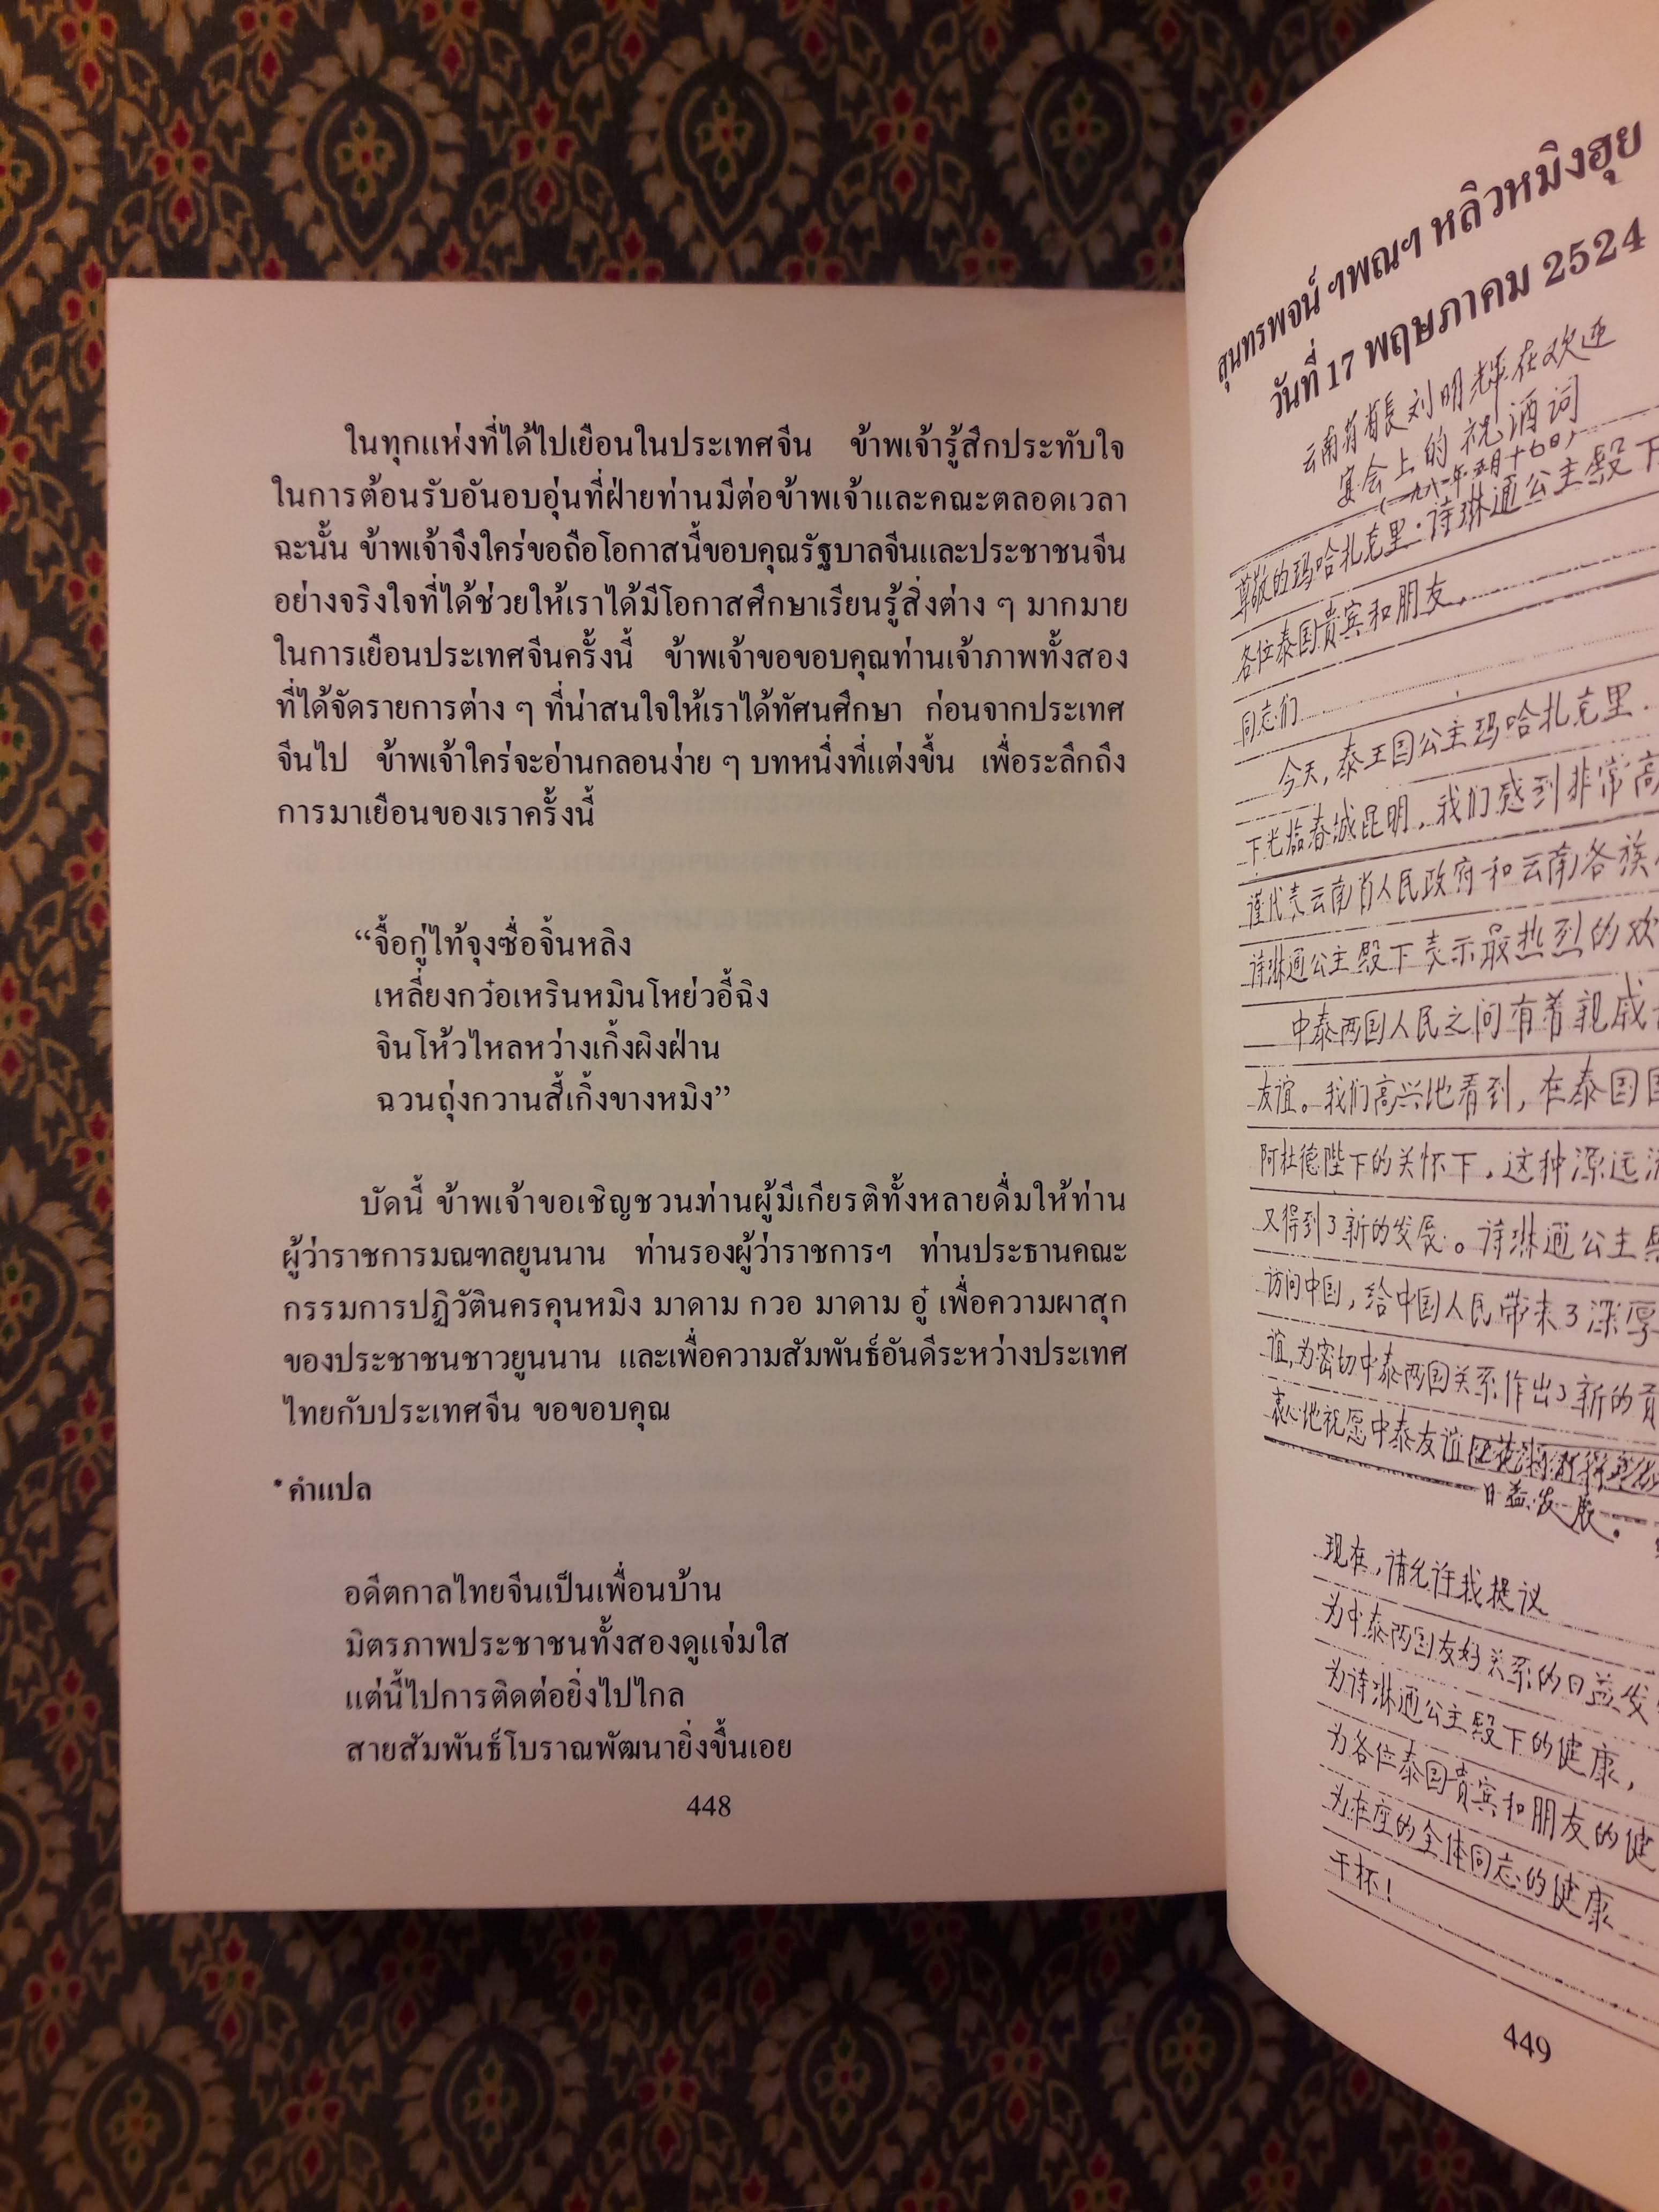 ในทุกแห่งที่ได้ไปเยือนในประเทศจีน ข้าพเจ้ารู้สึกประทับใจ
ในการต้อนรับอันอบอุ่นที่ฝ่ายท่านมีต่อข้าพเจ้าและคณะตลอดเวลา
ฉะนั้น ข้าพเจ้าจึงใคร่ขอถือโอกาสนี้ขอบคุณรัฐบาลจีนและประชาชนจีน
อย่างจริงใจที่ได้ช่วยให้เราได้มีโอกาสศึกษาเรียนรู้สิ่งต่าง ๆ มากมาย
ในการเยือนประเทศจีนครั้งนี้ ข้าพเจ้าขอขอบคุณท่านเจ้าภาพทั้งสอง
ที่ได้จัดรายการต่าง ๆ ที่น่าสนใจให้เราได้ทัศนศึกษา ก่อนจากประเทศ
จีนไป ข้าพเจ้าใคร่จะอ่านกลอนง่าย ๆ บทหนึ่งที่แต่งขึ้น เพื่อระลึกถึง
การมาเยือนของเราครั้งนี้
“จื้อกู่ไท้จุงซื่อจิ้นหลิง
เหลี่ยงกว๋อเหรินหมินโหย่วอี้ฉิง
จินโห้วไหลหว่างเกิ้งผิงฝ่าน
ฉวนถุ่งกวานสี้เกิ้งขางหมิง”
บัดนี้ ข้าพเจ้าขอเชิญชวนท่านผู้มีเกียรติทั้งหลายดื่มให้ท่าน
ผู้ว่าราชการมณฑลยูนนาน ท่านรองผู้ว่าราชการฯ ท่านประธานคณะ
กรรมการปฏิวัตินครคุนหมิง มาดาม กวอ มาดาม อู๋ เพื่อความผาสุก
ของประชาชนชาวยูนนาน และเพื่อความสัมพันธ์อันดีระหว่างประเทศ
ไทยกับประเทศจีน ขอขอบคุณ
*คำแปล
อดีตกาลไทยจีนเป็นเพื่อนบ้าน
มิตรภาพประชาชนทั้งสองดูแจ่มใส
แต่นี้ไปการติดต่อยิ่งไปไกล
สายสัมพันธ์โบราณพัฒนายิ่งขึ้นเอย
448
สุนทรพจน์ ฯพณฯ หลิวหมิงฮุย
วันที่ 17 พฤษภาคม 2524
云南省省长刘明辉在欢迎
宴会上的祝酒词
(一九八一年五月十七日)
尊敬的玛哈扎克里·诗琳通公主殿下
各位泰国贵宾和朋友,
同志们
今天,泰王国公主玛哈扎克里.
下光临春城昆明,我们感到非常高
谨代表云南省人民政府和云南各族
诗琳通公主殿下表示最热烈的欢
中泰两国人民之间有着亲戚
友谊。我们高兴地看到,在泰国国
阿杜德陛下的关怀下,这种源远流
又得到了新的发展。诗琳通公主
访问中国,给中国人民带来了深厚
谊,为密切中泰两国关系作出了新的贡
衷心地祝愿中泰友谊
日益发展.
现在,请允许我提议
为中泰两国友好关系的日益发
为诗琳通公主殿下的健康,
为各位泰国贵宾和朋友的健
为在座的全体同志的健康
干杯!
449